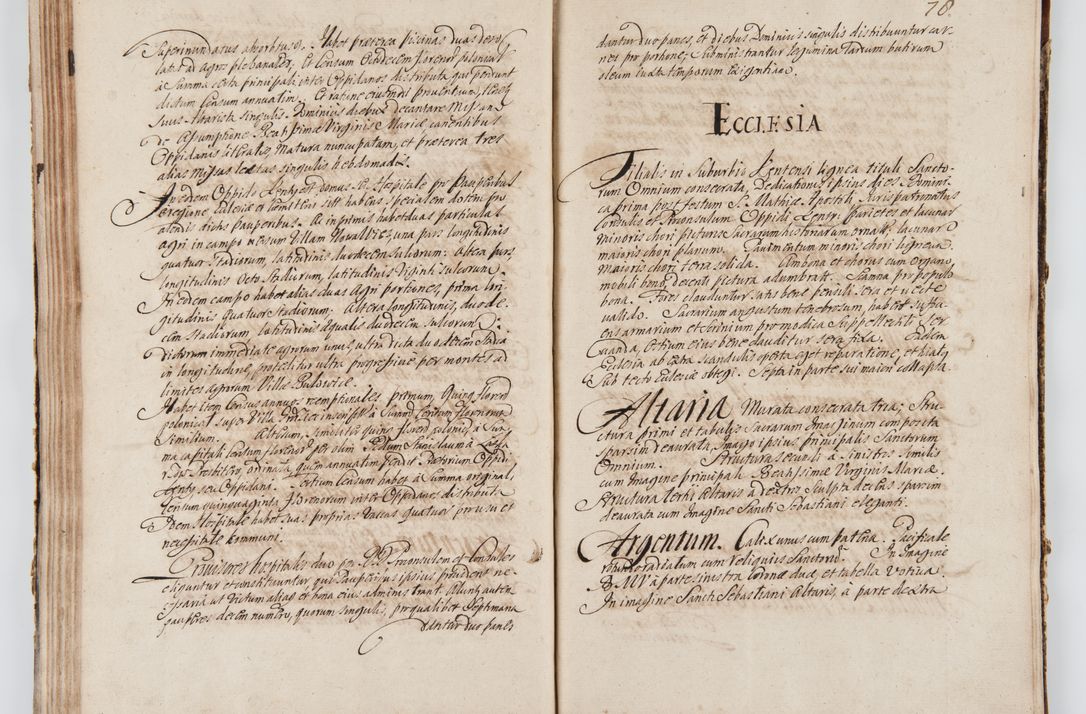 Superinundatus absorbtus. Habet præterea piscinas duas
latas ad agros plebanales. Et Censum Cendecem florenor polonical
a Summa sexta principali inter Oppidanos distributa qui
dictum censum annuatim. Et ratione eiusmodi proventuum,
suus Altarista singulis Dominicis diebus decantare Missam
De Assumptione Beatissimæ Virginis Mariæ canentibus
Oppidanis Matura nuncupatam, et præterea tres
alias Missas lectas singulis hebdomadis.
In eodem Oppido domus Hospitale pro Pauperibus
e regione Ecclesiæ et Cœmeterii sita habens specialem dotem pro
alendis dictis pauperibus. Ac inprimis habet duas particulas
agri in campo versus Villam una pars longitudinis
quatuor Stadiorum, latitudinis duodecim sulcorum: altera pars
longitudinis Octo Stadiorum, latitudinis Viginti sulcorum.
In eodem campo habet alias duas agri portiones, prima lon-
gitudinis quatuor stadiorum. Altera longitudinis, duode-
cim stadiorum latitudinis æqualis duodecim sulcorum
Dictorum immediate agrorum unus, ultra dicta duodecim Stadia
in longitudine, protenditur ultra progressive per montes ad
limites agrorum Villæ
Habet item Census annuos reemptionales, primum, Quinq florenor
polonical super Villa inscript a Summa Centum florenorum
similium. Alterum, similiter quinq floren polonic, a Sum-
ma capitali Centum florenor per olim Stanislaum a
Præstitor ordinata, quem annuatim pendet Prætorium Oppidi
seu Oppidani. Tertium Censum habet a Summa originali,
Centum quinquaginta florenorum inter Oppidanos distributa
Idem Hospitale habet suas proprias Vaccas quatuor pro usu et
necessitate communi.
Provisores hospitalis duo per D. Proconsulem et Consules
eliguntur et constituuntur qui pauperibus ipsius provident ne-
cessaria ut dictum alias et bona eius administrant. Aluntur autem
pauperes decem numero, quorum singulis, pro qualibet septimana
dantur duo panes
78.
dantur duo panes, et diebus Dominicis singulis distribuuntur car-
nes pro portione, Subministrantur legumina Tarum butirum
oleum iuxta temporum exigentiam.
ECCLESIA
Filialis in Suburbio Lentensi lignea tituli Sancto-
rum Omnium consecrata, Dedicationis ipsius dies Domini-
ca prima post festum S. Mathiæ Apostoli, Juris patronatus
Consulis et Proconsulum Oppidi parietes et lacunar
minoris chori picturis Sacrarum historiarum ornat. lacunar
maioris chori planum. Pavimentum minoris chori ligneum
Maioris chori terra solida. Ambona et chorus cum Organo
mobili bono, decenti pictura adumbrat. Samna pro populo
bona. Fores clauduntur satis bene pensili sera et vecte
valido. Sacrarium angustum tenebrosum, habet suffici-
ens armarium et scrinium pro modica Suppellectili ser-
vanda, Ostium eius bene clauditur sera fixa. Eadem
Ecclesia ab extra scandulis operta eget reparatione, et
sub tecto Ecclesiæ obtegi. Septa in parte sui maiori collapsa.
Altaria Murata consecrata tria; Stru-
ctura primi et tabulis Sacrarum Imaginum composita
sparsim deaurata, Imago ipsius principalis Sanctorum
Omnium. Structura secundi a sinistris similis
cum Imagine principali Beatissimæ Virginis Mariæ.
Structura tertii Altaris a dextris Sculpta decens sparsim
deaurata cum Imagine Sancti Sebastiani eleganti.
Argentum. Calix unus cum patena. Pacificale
rotundo radiatum cum reliquiis Sanctorum. In Imagine
B. M. V. a parte sinistra Coronæ duæ, et tabella votiva.
In imagine Sancti Sebastiani Altaris, a parte dextra